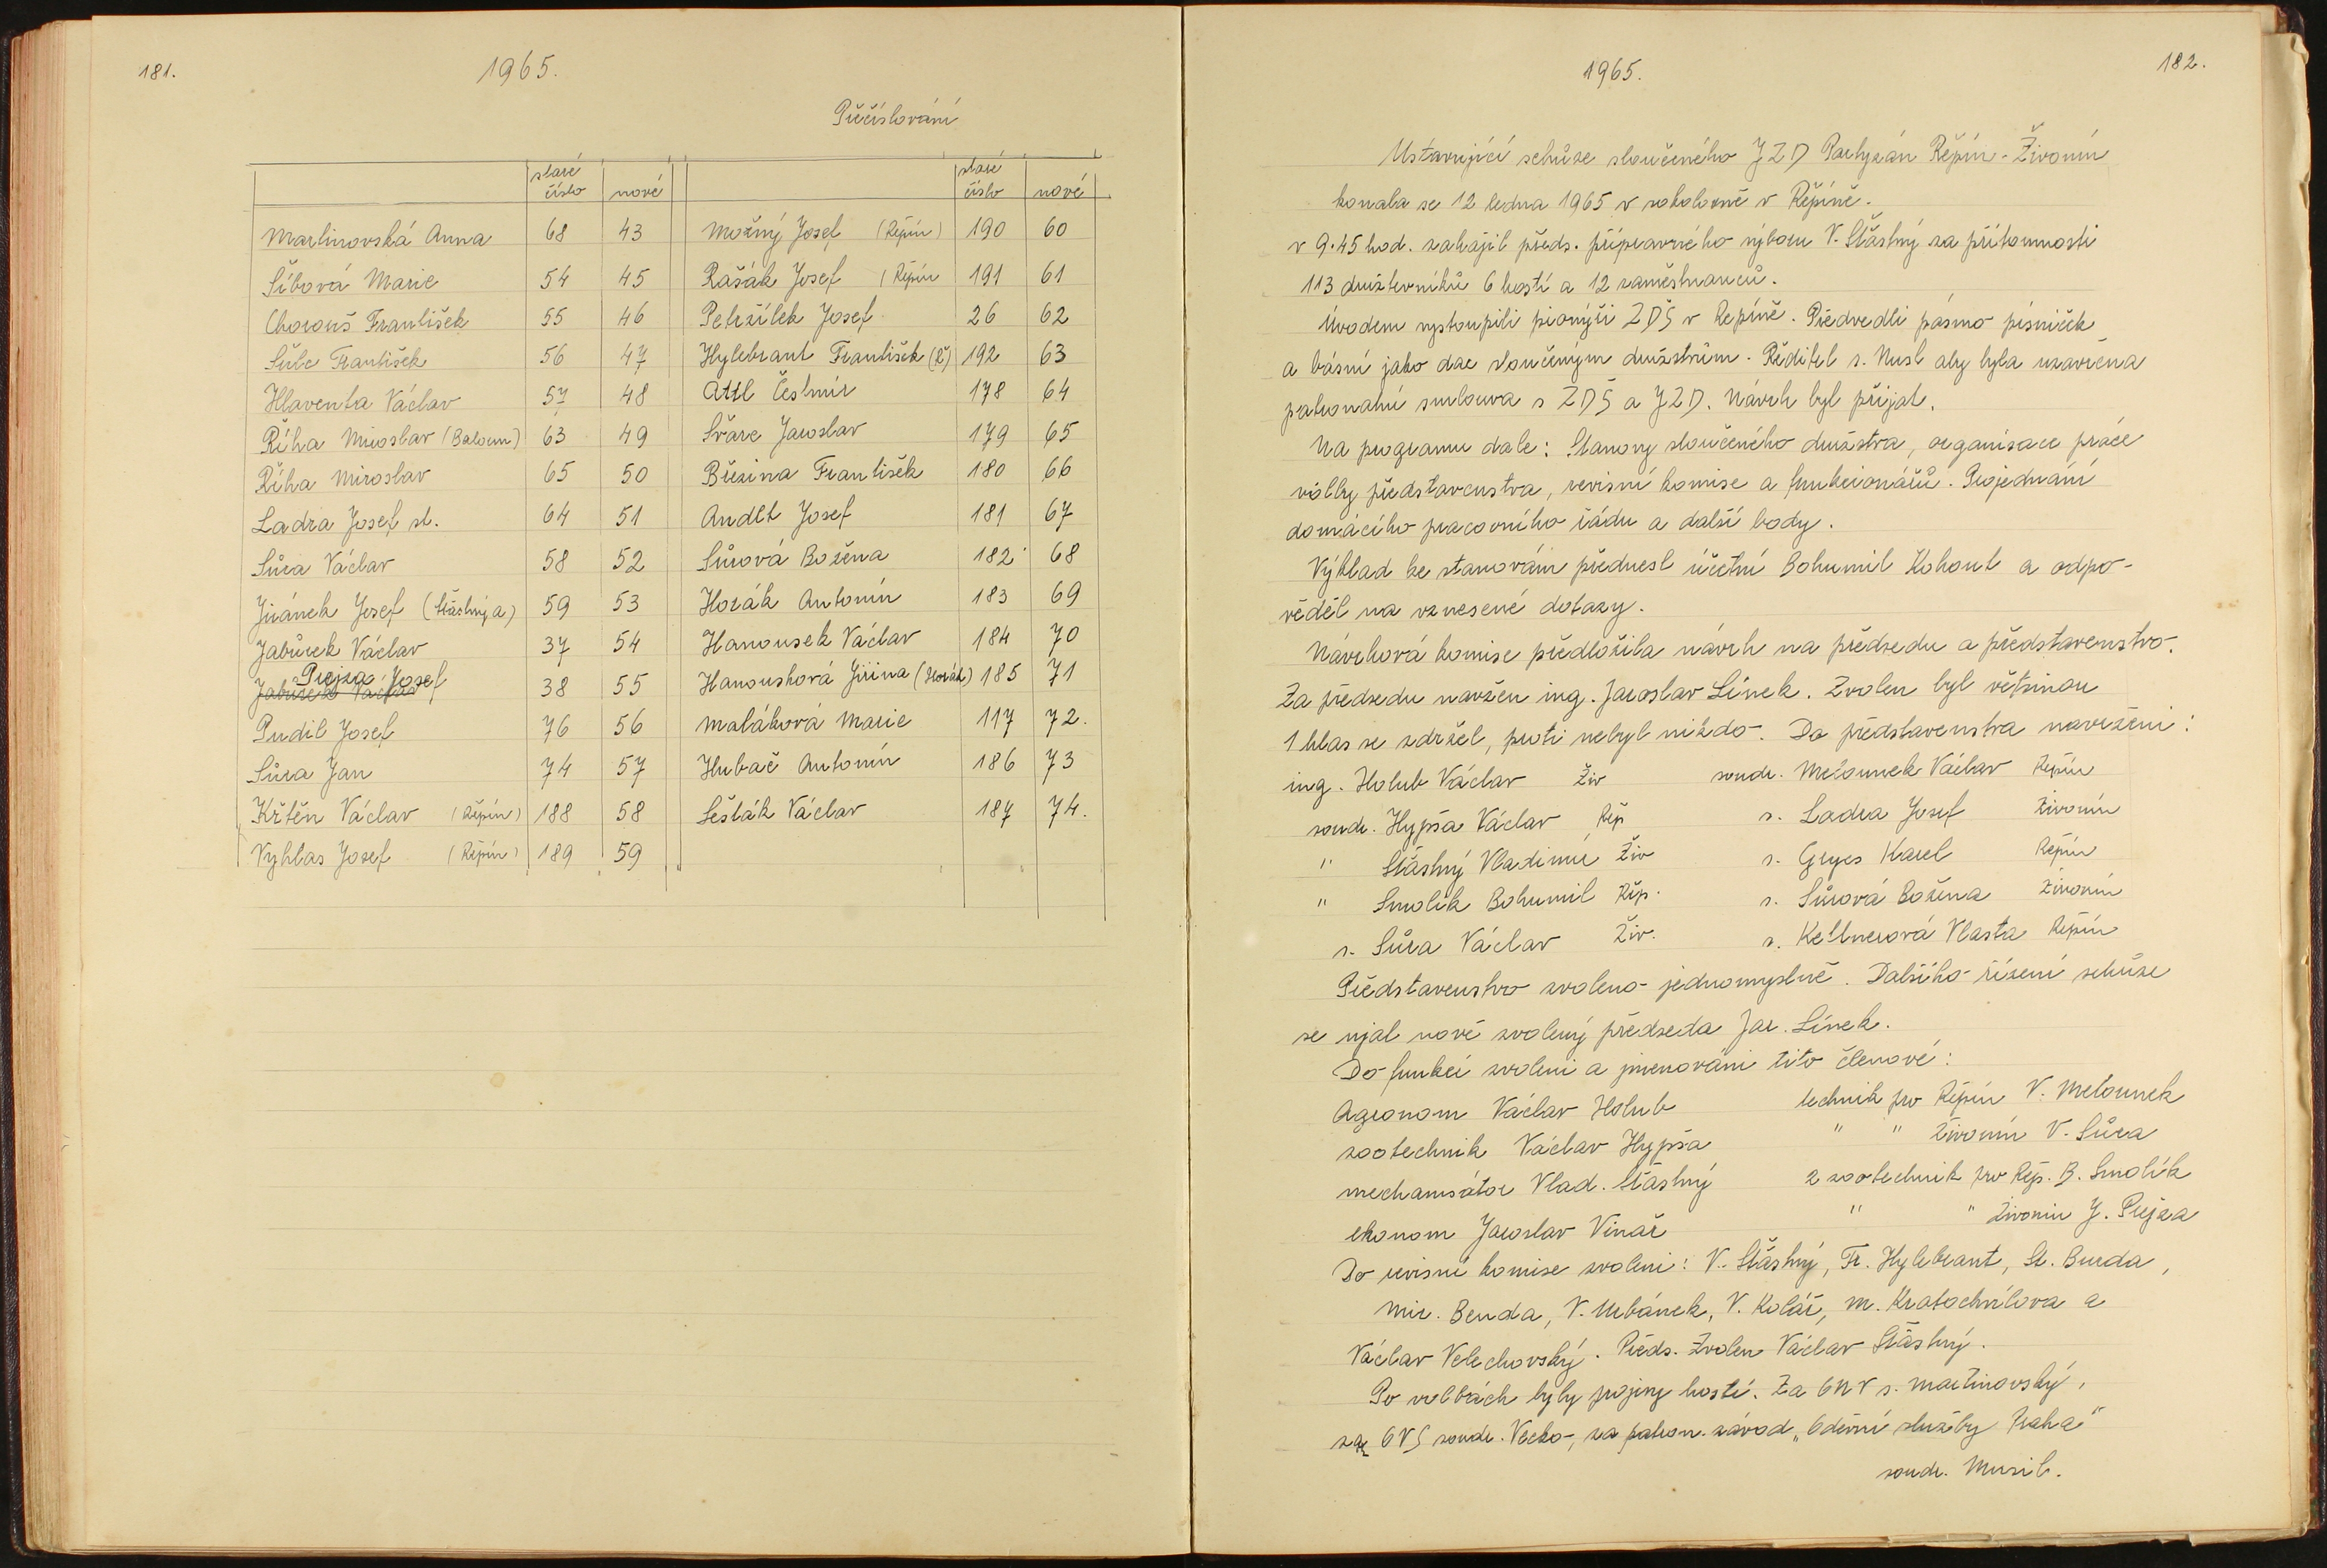 181.
1965.
Přečíslování
staré číslo nové staré číslo nové
Martinovská Anna 68 43 Možný Josef (Řepín) 190 60
Šíbová Marie 54 45 Rašák Josef (Řepín 191 61
Chorouš František 55 46 Petržílek Josef 26 62
Šulc František 56 47 Hylebrant František (Ř) 192 63
Hlaventa Václav 57 48 Attl Čestmír 178 64
Říha Miroslav (Baloun) 63 49 Švarc Jaroslav 179 65
Říha Miroslav 65 50 Březina František 180 66
Ladra Josef st. 64 51 Andlt Josef 181 67
Sůra Václav 58 52 Sůrová Božena 182 68
Jiránek Josef (Šťastnýa) 59 53 Horák Antonín 183 69
Jabůrek Václav 37 54 Hanousek Václav 184 70
Prejza Josef 38 55 Hanousková Jiřina (Horák) 185 71
Pudil Josef 76 56 Matáková Marie 117 72.
Sůra Jan 74 57 Hubač Antonín 186 73
Křtěn Václav (Řepín) 188 58 Šesták Václav 187 74.
Vyhlas Josef (Řepín) 189 59
1965.
182.
Ustavující schůze sloučeného JZD Partyzán Řepín - Živonín
konala se 12 ledna 1965 v sokolovně v Řepíně.
v 9.45 hod. zahájil předs. přípravného výboru V. Šťastný za přítomnosti
113 družstevníků 6 hostí a 12 zaměstnanců.
Úvodem vystoupili pionýři ZDŠ v Řepíně. Předvedli pásmo písniček
a básní jako dar sloučeným družstvům. Ředitel s. Nusl aby byla uzavřena
patronátní smlouva s ZDŠ a JZD. Návrh byl přijat.
Na programu dále: Stanovy sloučeného družstva, organisace práce
volby představenstva, revisní komise a funkcionářů. Projednání
domácího pracovního řádu a další body.
Výklad ke stanovám přednesl účetní Bohumil Kohout a odpo-
věděl na vznesené dotazy.
Návrhová komise předložila návrh na předsedu a představenstvo.
Za předsedu navržen ing. Jaroslav Línek. Zvolen byl většinou
1 hlas se zdržel, proti nebyl nikdo. Do představenstva navrženi:
ing. Holub Václav Živ soudr. Melounek Václav Řepín
soudr. Hypša Václav Řep s. Ladra Josef Živonín
" Šťastný Vladimír Živ s. Gryes Karel Řepín
" Smolík Bohumil Řep. s. Sůrová Božena Živonín
s. Sůra Václav Živ. s. Kellnerová Vlasta Řepín
Představenstvo zvoleno jednomyslně. Dalšího řízení schůze
se ujal nově zvolený předseda Jar. Línek.
Do funkcí zvoleni a jmenováni tito členové:
Agronom Václav Holub technik pro Řepín V. Melounek
zootechnik Václav Hypša " " Živonín V. Sůra
mechanisátor Vlad. Šťastný 2 zootechnik pro Řep. B. Smolík
ekonom Jaroslav Vinař " " Živonín J. Prejza
Do revisní komise zvoleni: V. Šťastný, Fr. Hylebrant, St. Burda,
Mir. Benda, V. Urbánek, V. Kolář, M. Kratochvílova a
Václav Velechovský. Předs. Zvolen Václav Šťastný.
Po volbách byly projevy hostí. Za ONV s. Martinovský,
za OVS soudr. Vecko, za patron. závod „Oděvní služby Praha"
soudr. Musil.